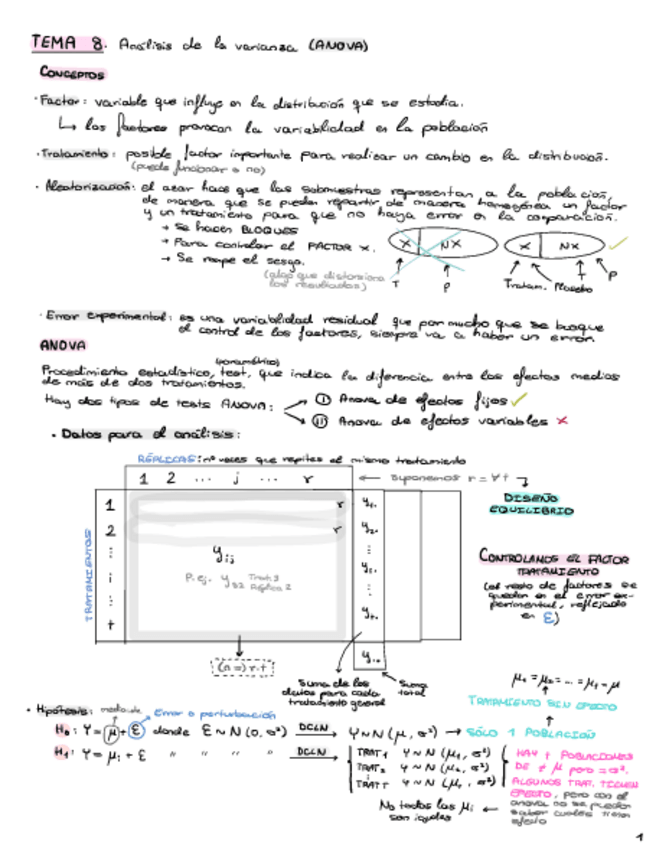 TEMA 8. Análisis de la varianza (ANOVA)
CONCEPTOS
· Factor: variable que influye en la distribución que se estudia.
↳ los factores provocan la variabilidad en la población
· Tratamiento: posible factor importante para realizar un cambio en la distribución.
(puede funcionar o no)
· Aleatorización: el azar hace que las submuestras representan a la población,
de manera que se puedan repartir de manera homogénea un factor
y un tratamiento para que no haya error en la comparación.
→ Se hacen BLOQUES
→ Para controlar el FACTOR X.
→ Se rompe el sesgo.
(algo que distorsiona
los resultados)
X NX
T P
X NX
Tratam. Placebo T P
· Error experimental: es una variabilidad residual que por mucho que se busque
el control de los factores, siempre va a haber un error.
ANOVA
(paramétrico)
Procedimiento estadístico, test, que indica la diferencia entre los efectos medios
de más de dos tratamientos.
Hay dos tipos de tests ANOVA:
I Anova de efectos fijos ✓
II Anova de efectos variables ×
· Datos para el análisis:
RÉPLICAS: nº veces que repites el mismo tratamiento
1 2 ... j ... r
← suponemos r = ∀ t
DISEÑO
EQUILIBRIO
TRATAMIENTOS
1 r y₁.
2 r y₂.
⋮ ⋮
i yᵢ.
⋮ ⋮
t yₜ.
yᵢⱼ
P. ej. y₃₂ Trat. 3
Réplica 2
y..
(n =) r·t
Suma de los
datos para cada
tratamiento general
Suma
total
CONTROLAMOS EL FACTOR
TRATAMIENTO
(el resto de factores se
quedan en el error ex-
perimental, reflejado
en ε)
μ₁ = μ₂ = ... = μₜ = μ
TRATAMIENTO SIN EFECTO
· Hipótesis: media de
Error o perturbación
H₀: Y = μ + ε donde ε ~ N (0, σ²) DCLN Y ~ N (μ, σ²) → SÓLO 1 POBLACIÓN
H₁: Y = μᵢ + ε " " " " DCLN
TRAT₁ Y ~ N (μ₁, σ²)
TRAT₂ Y ~ N (μ₂, σ²)
⋮
TRAT t Y ~ N (μₜ, σ²)
HAY t POBLACIONES
DE ≠ μ pero = σ².
ALGUNOS TRAT. TIENEN
EFECTO, pero con el
anova no se puede
saber cuáles tienen
efecto
No todas las μᵢ ←
son iguales
1